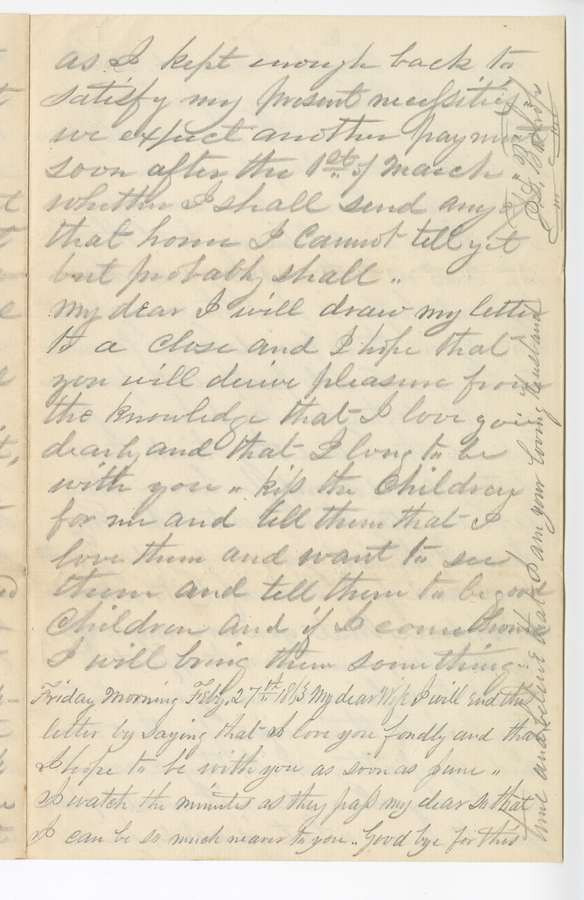 as I kept enough back to
satisfy my present necessities
we expect another payment
soon after the 1st of March
whether I shall send any
that home I cannot tell yet
but probably shall ..
my dear I will draw my letter
to a close and I hope that
you will derive pleasure from
the knowledge that I love you
dearly and that I long to be
with you .. kiss the children
for me and tell them that I
love them and want to see
them and tell them to be good
children and if I come home
I will bring them something
Friday Morning Feby 27th 1863 My dear Wife I will end this
letter by saying that I love you fondly and that
I hope to be with you as soon as June ..
I watch the minutes as they pass my dear so that
I can be so much nearer to you .. Good bye for this
time and believe that I am your loving Husband